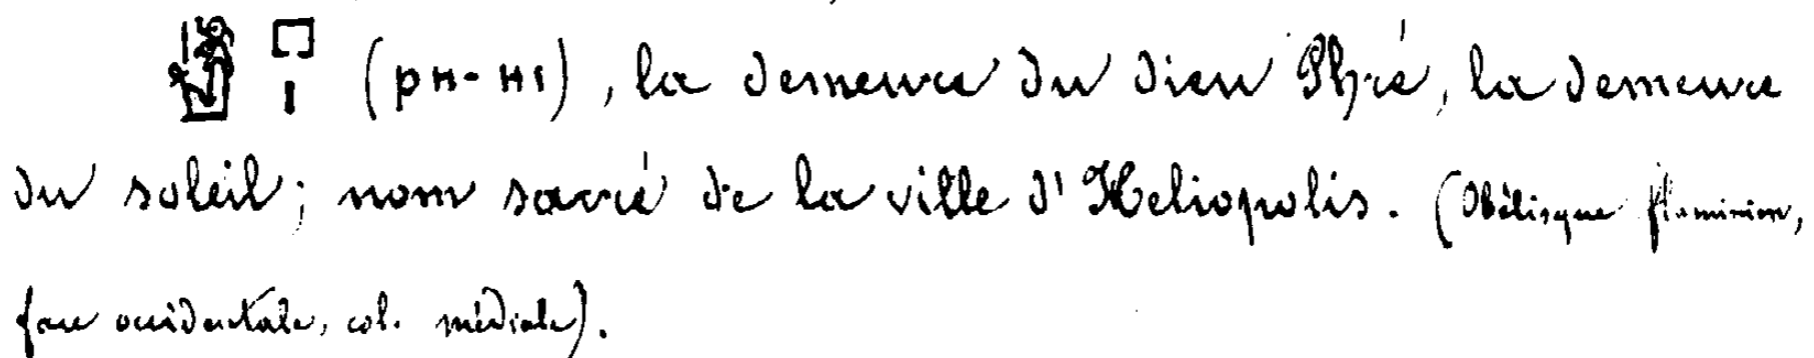 𓉐𓏤 (ⲣⲏ-ⲏⲓ), la demeure du dieu Phré, la demeure
du soleil; nom sacré de la ville d'Heliopolis. (Obélisque flaminien,
face occidentale, col. médiale).